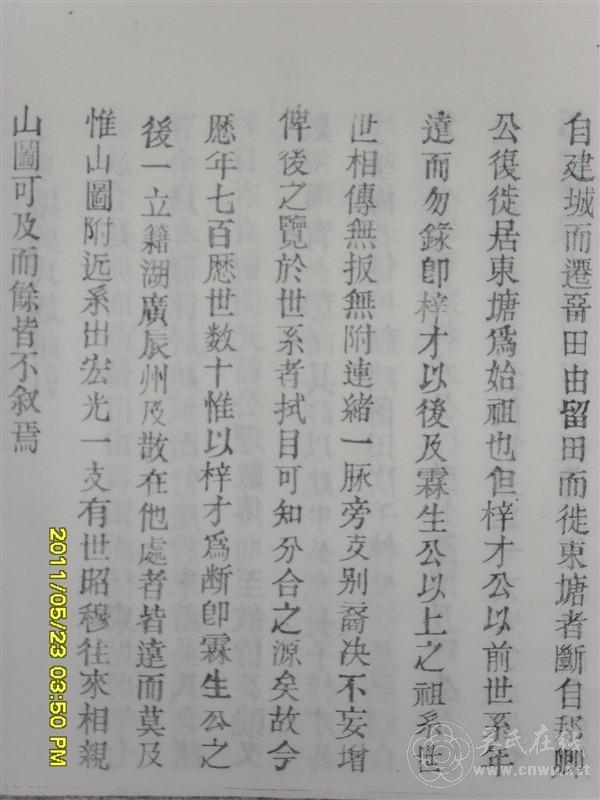 自建城而遷畱田由留田而徙東塘者斷自邦卿
公復徙居東塘爲始祖也但梓才公以前世系年
遠而勿錄卽梓才以後及霖生公以上之祖系世
世相傳無扳無附連緒一脉旁支别裔决不妄增
俾後之覽於世系者拭目可知分合之源矣故今
歷年七百歷世数十惟以梓才爲断卽霖生公之
後一立籍湖廣辰州及散在他處者皆遠而莫及
惟山圖附近系出宏光一支有世昭穆往來相親
山圖可及而餘皆不叙焉
2011/05/23 03:50 PM
氏在线
www.cnwu.net